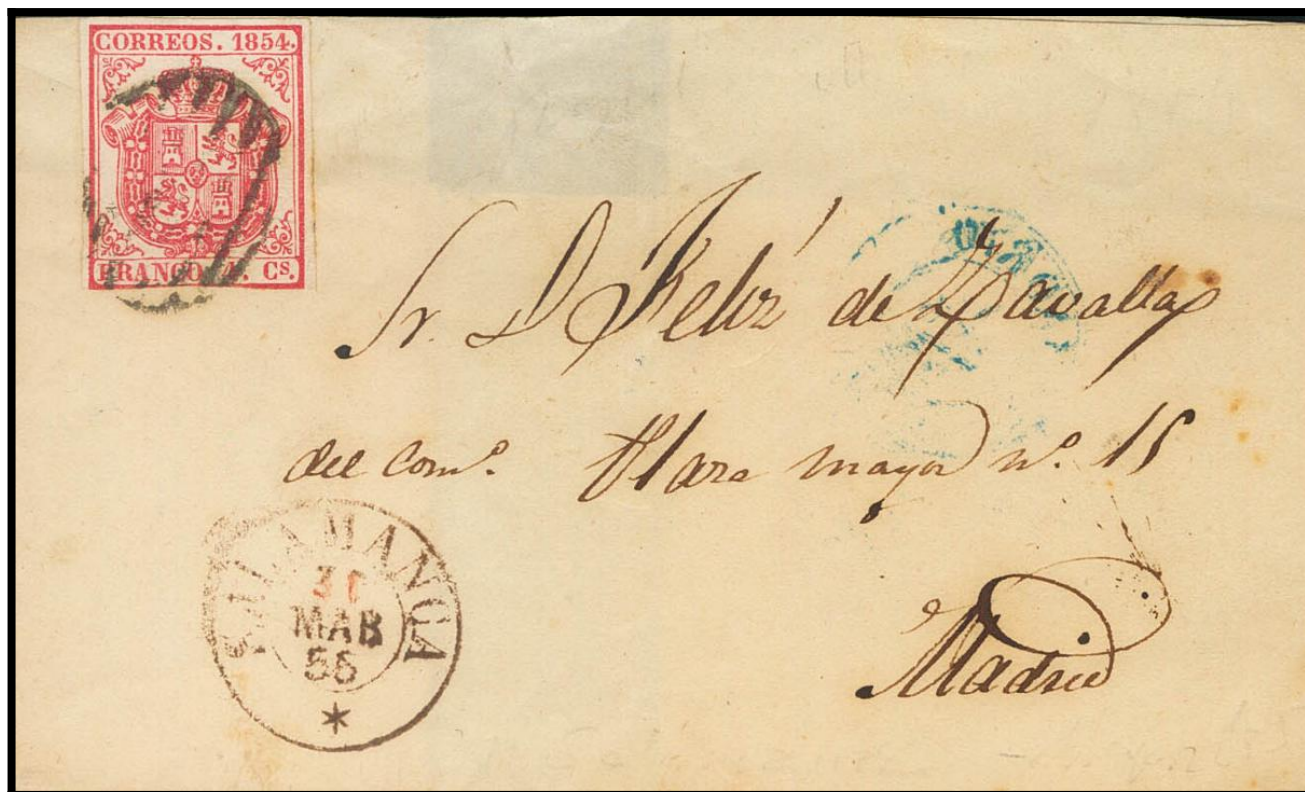 CORREOS. 1854.
FRANCO. Cs.
Sr. D. Feliz de Zavalla
del Como. Plaza mayor nº. 15
Madrid
SALAMANCA
31
MAR